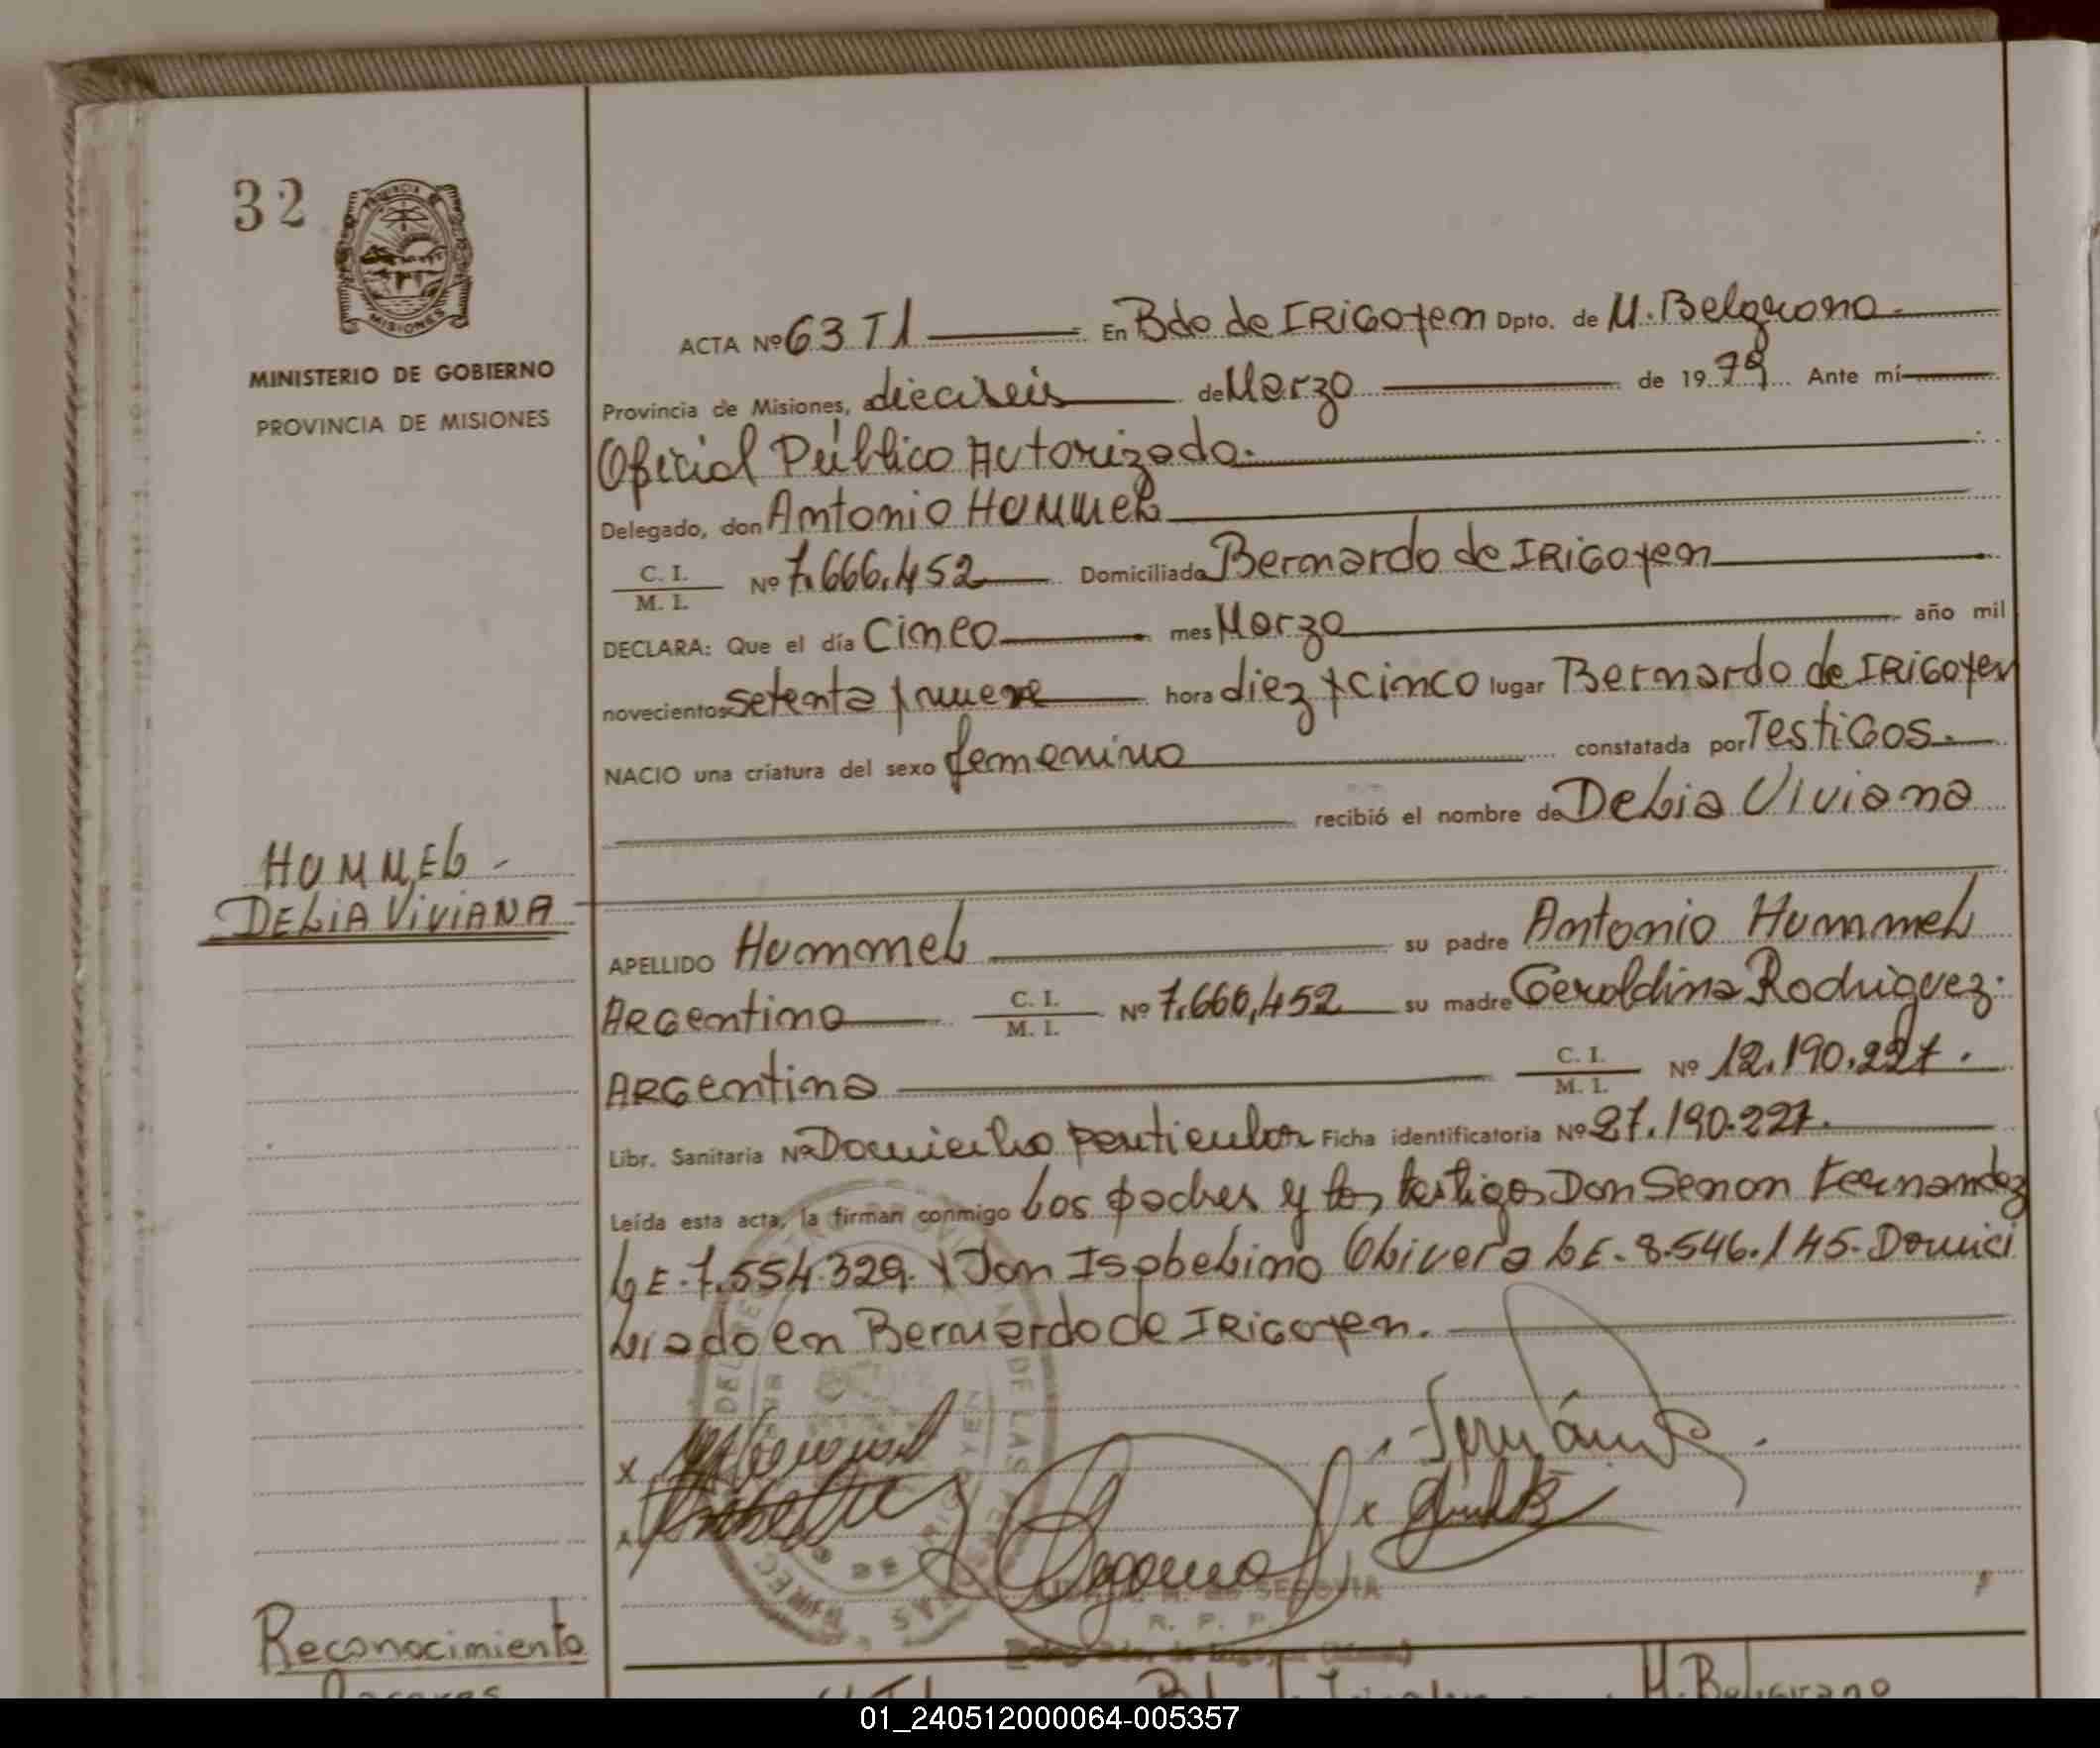 32
PROVINCIA
MISIONES
MINISTERIO DE GOBIERNO
PROVINCIA DE MISIONES
ACTA Nº 63 T1 En Bdo de IRIGOYEN Dpto. de M. Belgrano.
Provincia de Misiones, a dieciseis de Marzo de 1979 Ante mí
Oficial Público Autorizado.
Delegado, don Antonio HUMMEL
C. I. / M. I. Nº 7.666.452 Domiciliado Bernardo de IRIGOYEN
DECLARA: Que el día Cinco mes Marzo año mil
novecientos setenta y nueve hora diez y cinco lugar Bernardo de IRIGOYEN
NACIO una criatura del sexo femenino constatada por Testigos.
recibió el nombre de Delia Viviana
HUMMEL -
DELIA VIVIANA
APELLIDO Hummel su padre Antonio Hummel
Argentino C. I. / M. I. Nº 7.666,452 su madre Geraldina Rodriguez.
Argentina C. I. / M. I. Nº 12.190.227.
Libr. Sanitaria Nº Domicilio particular Ficha identificatoria Nº 27.190.227.
Leída esta acta, la firman conmigo Los padres y los testigos Don Senon Fernandez
LE. 7.554.329. y Don Isabelino Olivera LE. 8.546.145. Domici
liado en Bernardo de IRIGOYEN.
DE LAS
SEGOVIA
R. P. P.
Reconocimiento
M. Belgrano
01_240512000064-005357